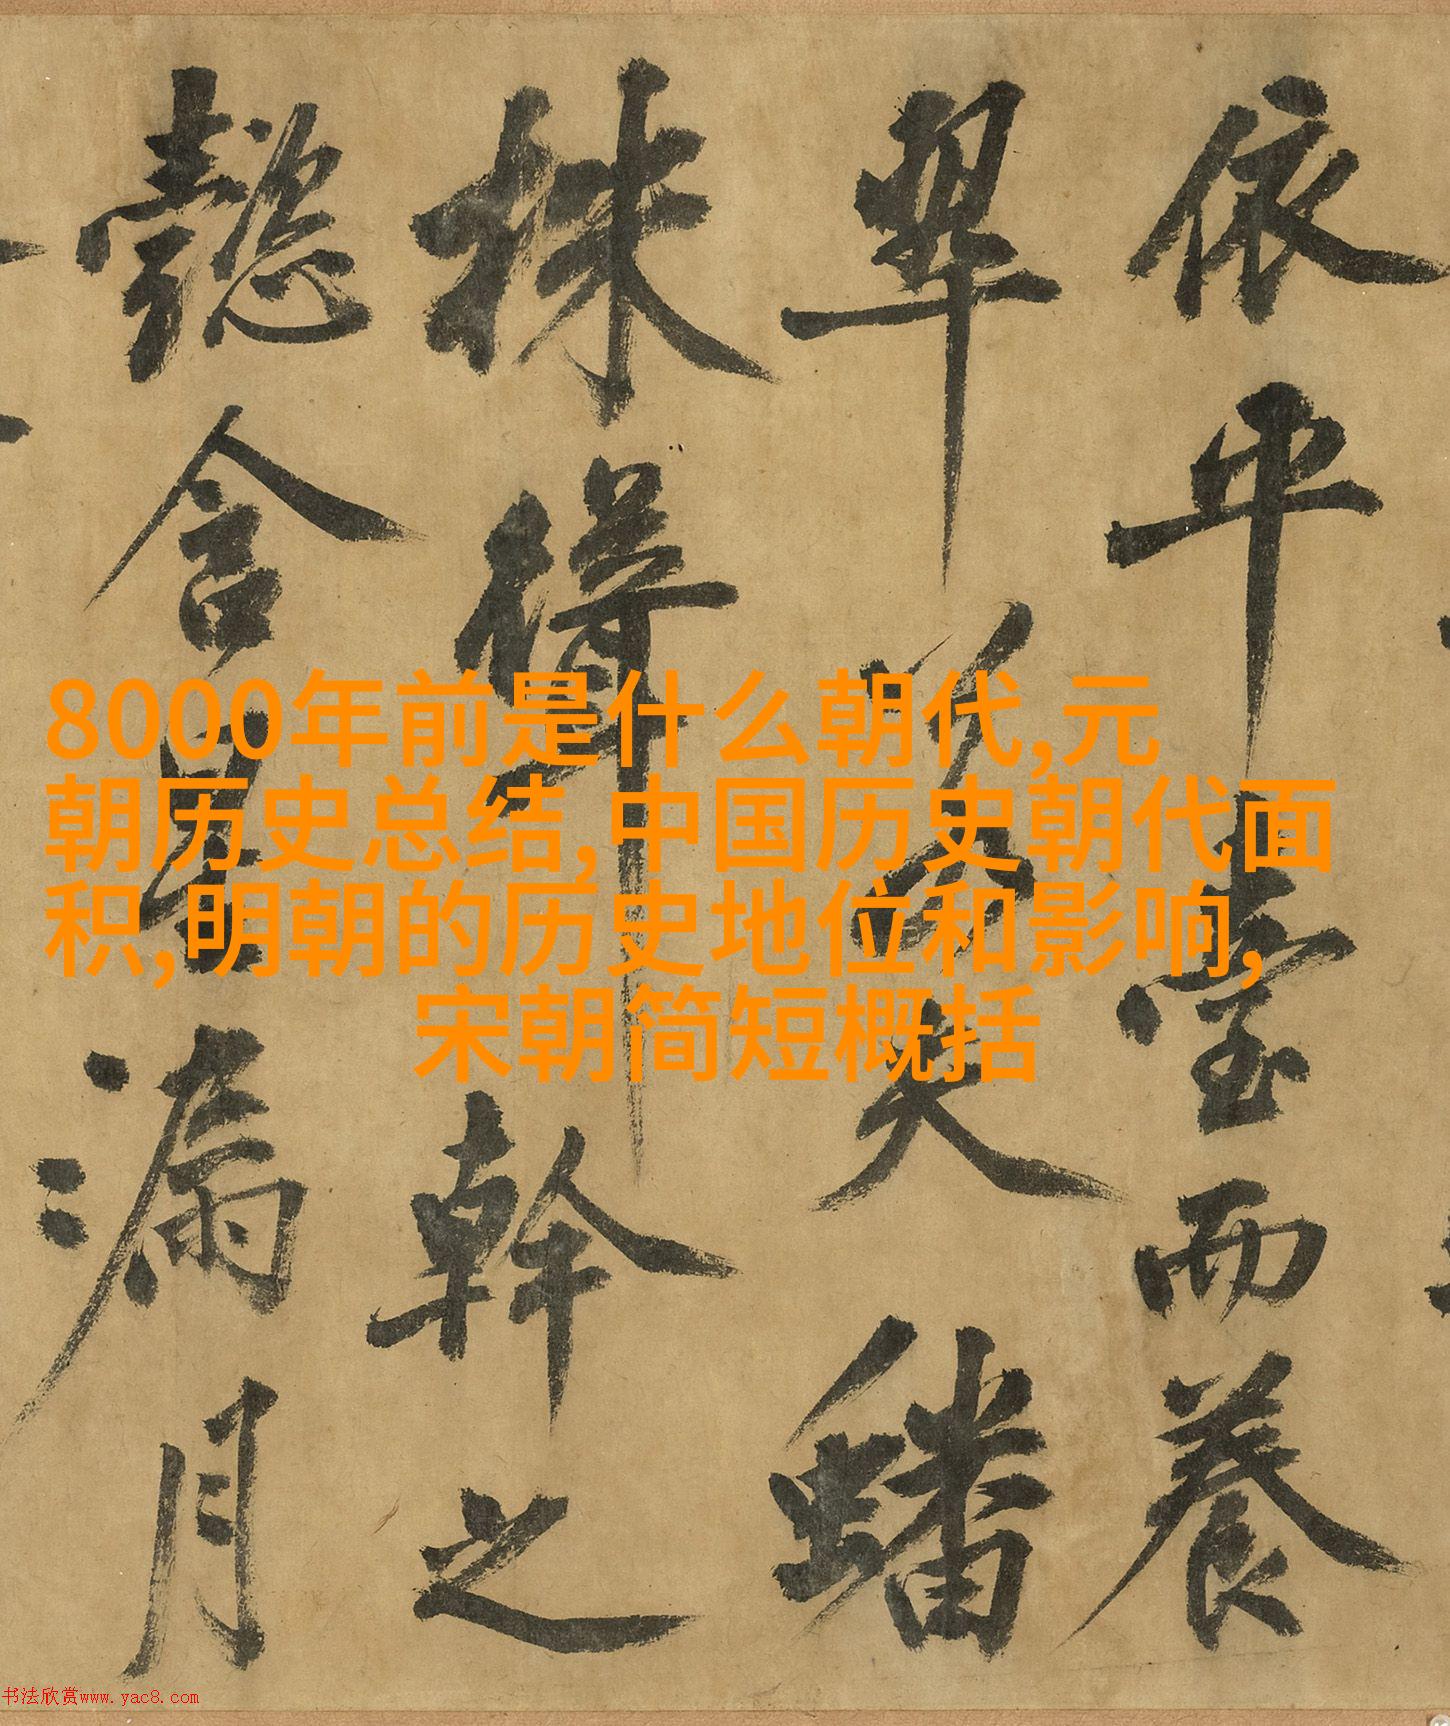 依平臺而養
翠若夫蟠
株聳幹之
懿含星漏月
8000年前是什么朝代,元
朝历史总结,中国历史朝代面
积,明朝的历史地位和影响,
宋朝简短概括
书法欣赏www.yac8.com